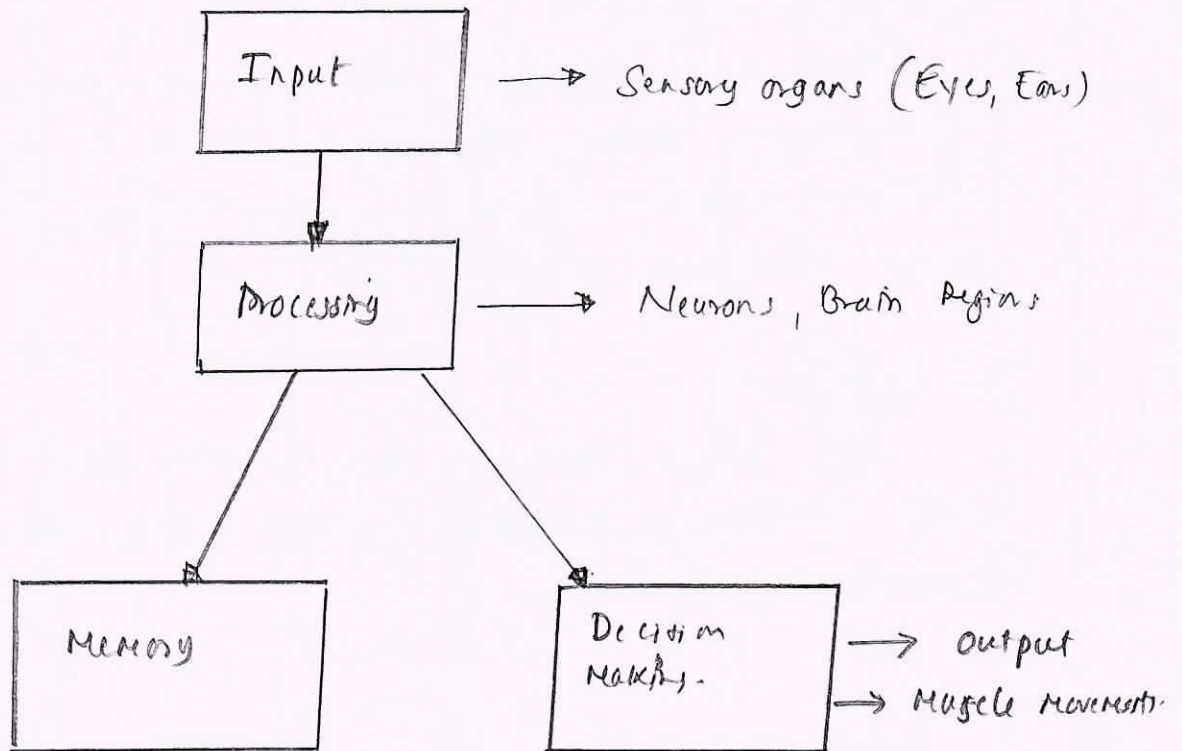 Input
Sensory organs (Eyes, Ears)
Processing
Neurons, Brain Regions
Memory
Decision
Making.
output
Muscle Movements.